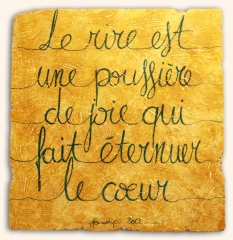 Le rire est
une poussière
de joie qui
fait éternuer
le cœur